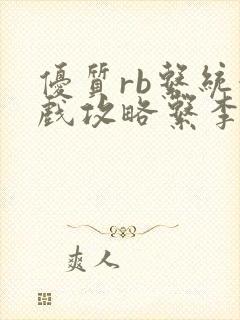 優質rb繫統
戲攻略繫李
爽人